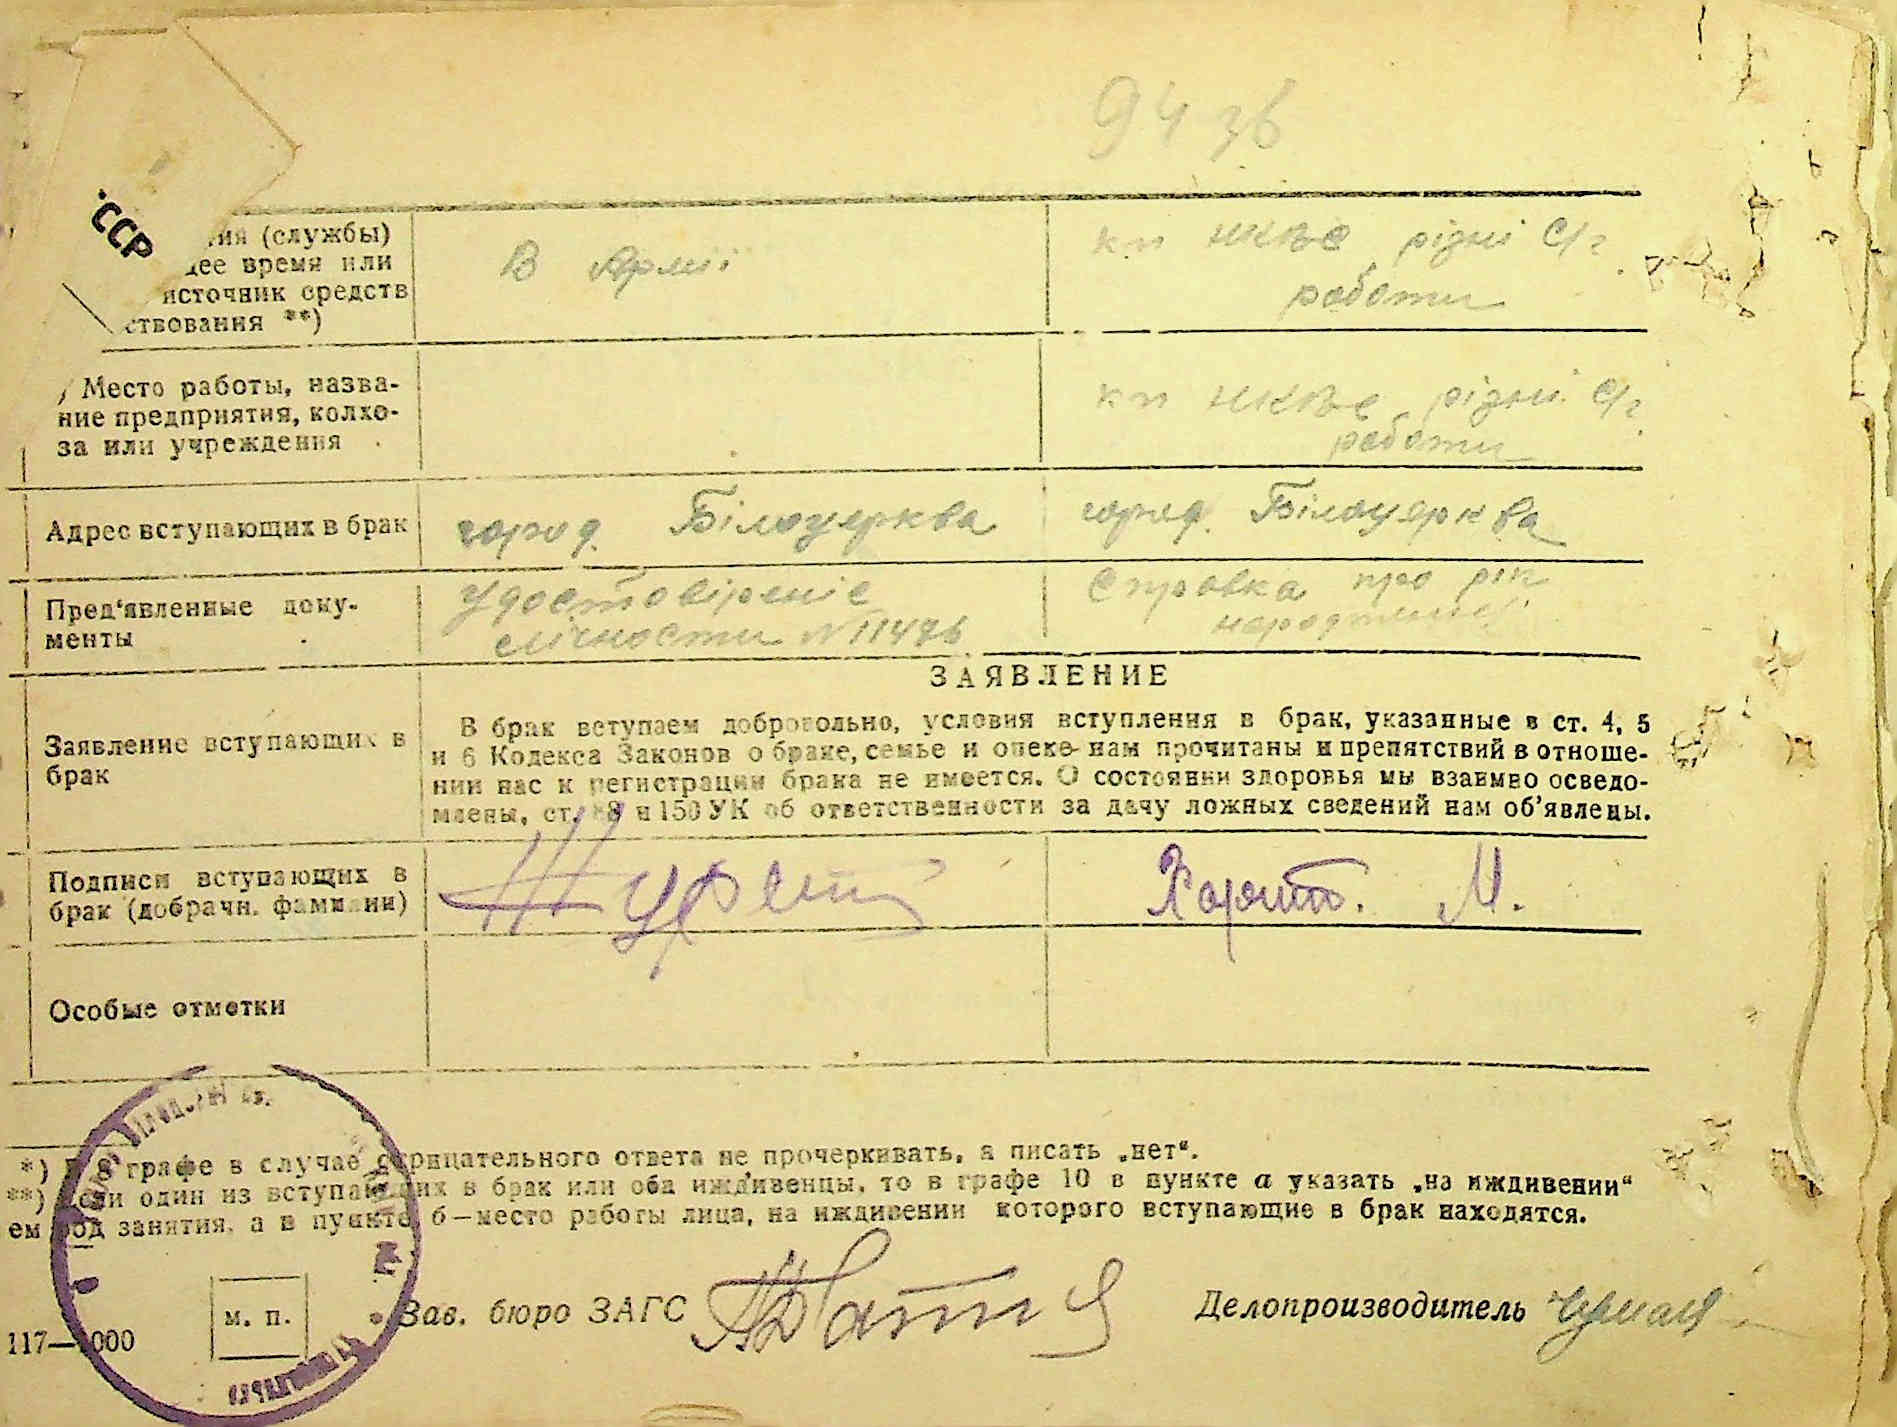 94 зв
ССР
ия (службы)
щее время или
источник средств
ствования **)
В Армії
кп НКВС різні С/г
работи
Место работы, назва-
ние предприятия, колхо-
за или учреждения
кп НКВС різні С/г
работи
Адрес вступающих в брак
город. Білоцерква
город. Білоцерква
Пред'явленные доку-
менты
Удостовіреніє
лічности N 11476
Справка про рік
народженні
ЗАЯВЛЕНИЕ
Заявление вступающих в
брак
В брак вступаем добровольно, условия вступления в брак, указанные в ст. 4, 5
и 6 Кодекса Законов о браке, семье и опеке- нам прочитаны и препятствий в отноше-
нии нас к регистрации брака не имеется. О состоянии здоровья мы взаимно осведо-
млены, ст. 88 и 150 УК об ответственности за дачу ложных сведений нам об'явлены.
Подписи вступающих в
брак (добрачн. фамилии)
М.
Особые отметки
*) В 8 графе в случае отрицательного ответа не прочеркивать, а писать „нет“.
**) Если один из вступающих в брак или оба иждивенцы, то в графе 10 в пункте а указать „на иждивении“
ем род занятия, а в пункте б—место работы лица, на иждивении которого вступающие в брак находятся.
м. п.
Зав. бюро ЗАГС
Делопроизводитель
117—000